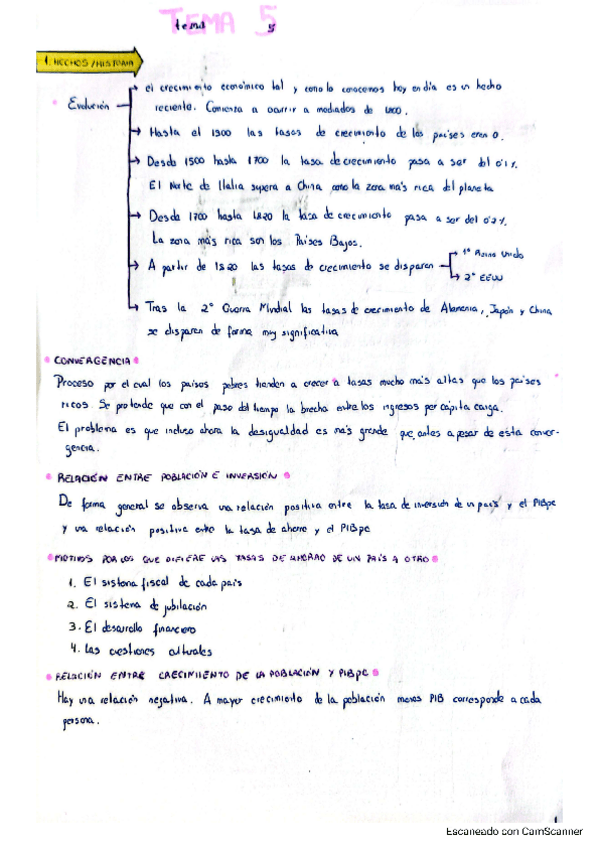 TEMA 5
tema 5
1. HECHOS / HISTORIA
Evolución
→ el crecimiento económico tal y como lo conocemos hoy en día es un hecho
reciente. Comienza a ocurrir a mediados de
→ Hasta el 1300 las tasas de crecimiento de los países eran 0.
→ Desde 1500 hasta 1700 la tasa de crecimiento pasa a ser del 0'1%.
El Norte de Italia supera a China como la zona más rica del planeta
→ Desde 1700 hasta 1820 la tasa de crecimiento pasa a ser del 0'2%.
La zona más rica son los Países Bajos.
→ A partir de 1820 las tasas de crecimiento se disparan
→ 1º Reino Unido
→ 2º EEUU
→ Tras la 2º Guerra Mundial las tasas de crecimiento de Alemania, Japón y China
se disparan de forma muy significativa
CONVERGENCIA
Proceso por el cual los países pobres tienden a crecer a tasas mucho más altas que los países
ricos. Se pretende que con el paso del tiempo la brecha entre los ingresos per cápita caiga.
El problema es que incluso ahora la desigualdad es más grande que antes a pesar de esta conver-
gencia.
RELACIÓN ENTRE POBLACIÓN E INVERSIÓN
De forma general se observa una relación positiva entre la tasa de inversión de un país y el PIBpc
y una relación positiva entre la tasa de ahorro y el PIBpc
MOTIVOS POR LOS QUE DIFIERE LAS TASAS DE AHORRO DE UN PAÍS A OTRO
1. El sistema fiscal de cada país
2. El sistema de jubilación
3. El desarrollo financiero
4. Las cuestiones culturales
RELACIÓN ENTRE CRECIMIENTO DE LA POBLACIÓN Y PIBpc
Hay una relación negativa. A mayor crecimiento de la población menos PIB corresponde a cada
persona.
1
Escaneado con CamScanner